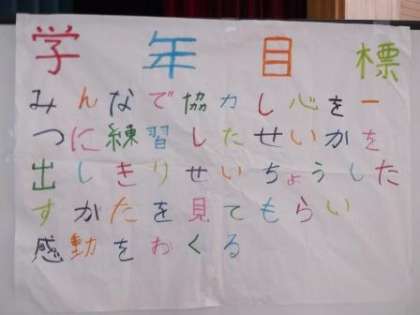 学年目標
みんなで協力し心を一
つに練習したせいかを
出しきりせいちょうした
すがたを見てもらい
感動をおくる